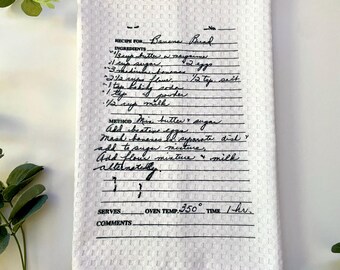 No.
RECIPE FOR Banana Bread
INGREDIENTS
1/2 cup butter or margarine
1 cup sugar 2 eggs
3 medium bananas
2 1/2 cups flour 1/2 tsp salt
1 tsp baking soda
1 tsp " powder
1/2 cup milk
METHOD Mix butter & sugar
Add beaten eggs
Mash bananas in separate dish &
add to sugar mixture
Add flour mixture & milk
alternately.
SERVES OVEN TEMP. 350° TIME 1 hr.
COMMENTS